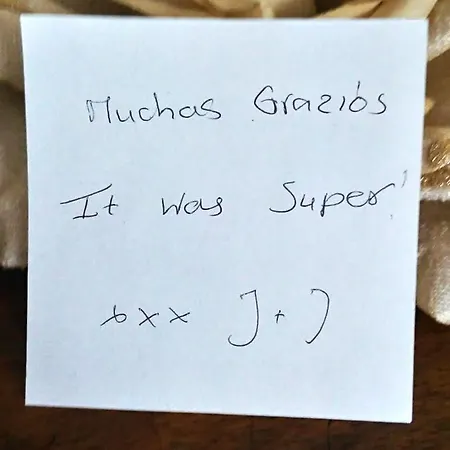 Muchas Graziós
It was Super!
xxx J + J